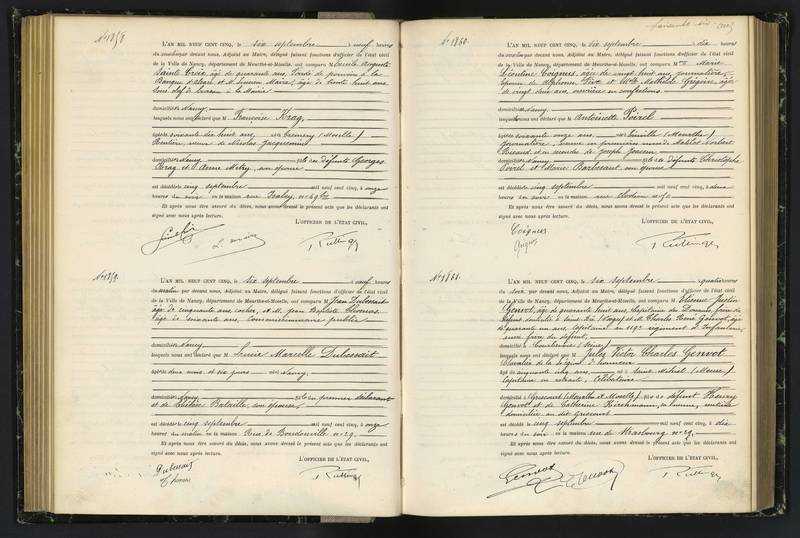 N° 1858
L'AN MIL NEUF CENT CINQ, le six septembre à neuf heures
du matin par devant nous, Adjoint au Maire, délégué faisant fonctions d'officier de l'état civil
de la Ville de Nancy, département de Meurthe-et-Moselle, ont comparu M Camille Auguste
Sainte Croix, âgé de quarante ans, fondé de pouvoirs à la
Banque et M Lucien Maire, âgé de trente huit ans
sous chef de bureau à la Mairie
domiciliés Nancy
lesquels nous ont déclaré que M Françoise Krag,
âgée de soixante dix huit ans, née (Moselle)
Rentière, veuve de Nicolas Jacquemin
domiciliée Nancy fille de défunts Georges
Krag et Anne son épouse
est décédée le cinq septembre mil neuf cent cinq, à onze
heures du soir en la maison rue Isabey n° 49 bis
Et après nous être assuré du décès, nous avons dressé le présent acte que les déclarants ont
signé avec nous après lecture.
L'OFFICIER DE L'ÉTAT CIVIL,
N° 1859
L'AN MIL NEUF CENT CINQ, le six septembre à neuf heures
du matin par devant nous, Adjoint au Maire, délégué faisant fonctions d'officier de l'état civil
de la Ville de Nancy, département de Meurthe-et-Moselle, ont comparu M Jean Dubessait
âgé de cinquante ans, cocher, et M. Jean Baptiste Thomas,
âgé de soixante ans, commissionnaire public
domiciliés Nancy
lesquels nous ont déclaré que M Lucie Marcelle Dubessait
âgée de deux mois et dix jours née Nancy
domiciliée Nancy fille du premier déclarant
et de Bataille, son épouse
est décédée le cinq septembre mil neuf cent cinq, à onze
heures du matin en la maison Rue de Boudonville n° 29
Et après nous être assuré du décès, nous avons dressé le présent acte que les déclarants ont
signé avec nous après lecture.
L'OFFICIER DE L'ÉTAT CIVIL,
Dubessait
Thomas
N° 1860
L'AN MIL NEUF CENT CINQ, le six septembre à dix heures
du matin par devant nous, Adjoint au Maire, délégué faisant fonctions d'officier de l'état civil
de la Ville de Nancy, département de Meurthe-et-Moselle, ont comparu M Marie
Léontine Coignus, âgée de vingt huit ans, journalière,
épouse de Alphonse et Mathilde âgée
de vingt ans, ouvrière en confections
domiciliées Nancy
lesquelles nous ont déclaré que M Antoinette Poirel
âgée de soixante onze ans née (Meurthe)
journalière, veuve en premières noces de Norbert
Ricaud et en secondes de Joseph
domiciliée Nancy fille de défunts Christophe
Poirel et Marie son épouse
est décédée le cinq septembre mil neuf cent cinq, à deux
heures du soir en la maison rue Clodion n° 10
Et après nous être assuré du décès, nous avons dressé le présent acte que les déclarants ont
signé avec nous après lecture.
L'OFFICIER DE L'ÉTAT CIVIL,
Coignus
N° 1861
L'AN MIL NEUF CENT CINQ, le six septembre à quatre heures
du soir par devant nous, Adjoint au Maire, délégué faisant fonctions d'officier de l'état civil
de la Ville de Nancy, département de Meurthe-et-Moselle, ont comparu M Etienne Justin
Genvot, âgé de quarante huit ans, Capitaine des Douanes, frère du
défunt, domicilié à (Vosges) et M Charles René Genvot, âgé
de quarante un ans, capitaine au 119e régiment d'Infanterie,
aussi frère du défunt,
domicilié à Courbevoie (Seine)
lesquels nous ont déclaré que M Jules Victor Charles Genvot
Chevalier de la Légion d'honneur
âgé de cinquante cinq ans né à Saint Mihiel (Meuse)
capitaine en retraite, Célibataire
domicilié Griscourt (Meurthe et Moselle) fils de défunt
Genvot et de Catherine Kirchmann, sa veuve, rentière
domiciliée au dit Griscourt
est décédé le cinq septembre mil neuf cent cinq, à dix
heures du soir en la maison rue de Strasbourg n° 29
Et après nous être assuré du décès, nous avons dressé le présent acte que les déclarants ont
signé avec nous après lecture.
L'OFFICIER DE L'ÉTAT CIVIL,
Genvot